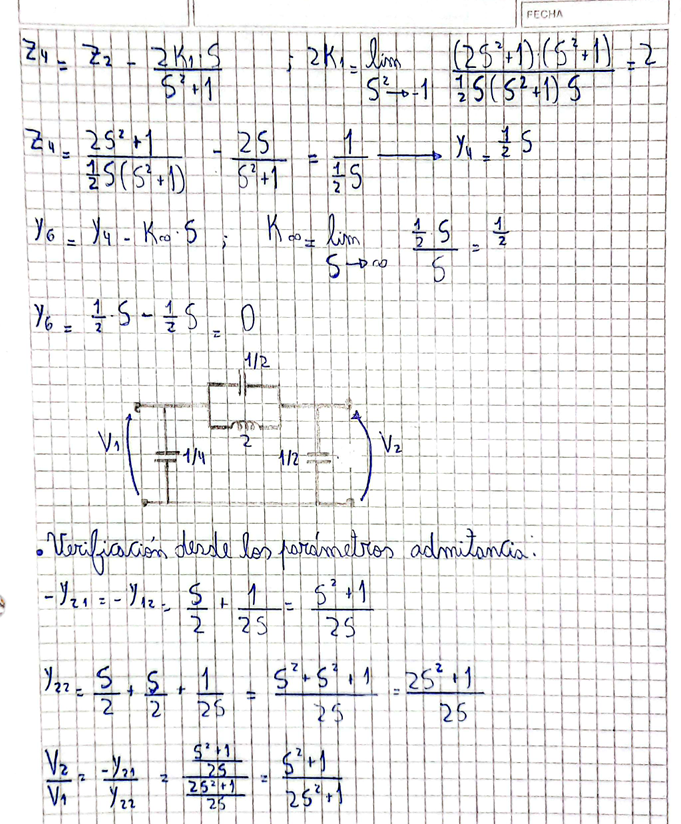 FECHA
Z₄ = Z₂ - 2K₁·S/(S²+1) ; 2K₁ = lim S²→-1 (2S²+1)·(S²+1)/(½S(S²+1)S) = 2
Z₄ = (2S²+1)/(½S(S²+1)) - 2S/(S²+1) = 1/(½S) → Y₄ = ½S
Y₆ = Y₄ - K∞·S ; K∞ = lim S→∞ (½·S)/S = ½
Y₆ = ½·S - ½S = 0
1/2
2
V₁ 1/4 1/2 V₂
• Verificación desde los parámetros admitancia:
-Y₂₁ = -Y₁₂ = S/2 + 1/2S = (S²+1)/2S
Y₂₂ = S/2 + S/2 + 1/2S = (S²+S²+1)/2S = (2S²+1)/2S
V₂/V₁ = -Y₂₁/Y₂₂ = ((S²+1)/2S)/((2S²+1)/2S) = (S²+1)/(2S²+1)